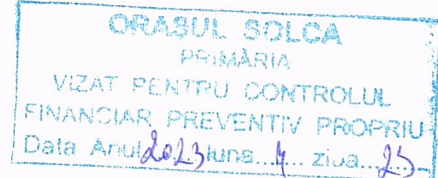 ORAȘUL SOLCA
PRIMĂRIA
VIZAT PENTRU CONTROLUL
FINANCIAR PREVENTIV PROPRIU
Data Anul 2023 luna... 4... ziua... 25